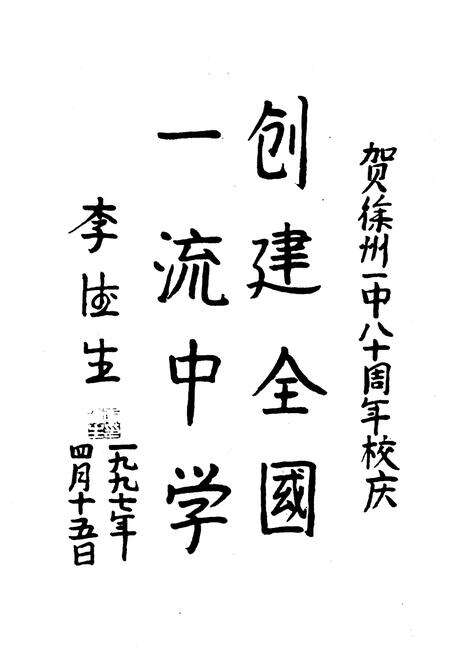 贺徐州一中八十周年校庆
创建全國
一流中学
李德生
一九九七年
四月十五日